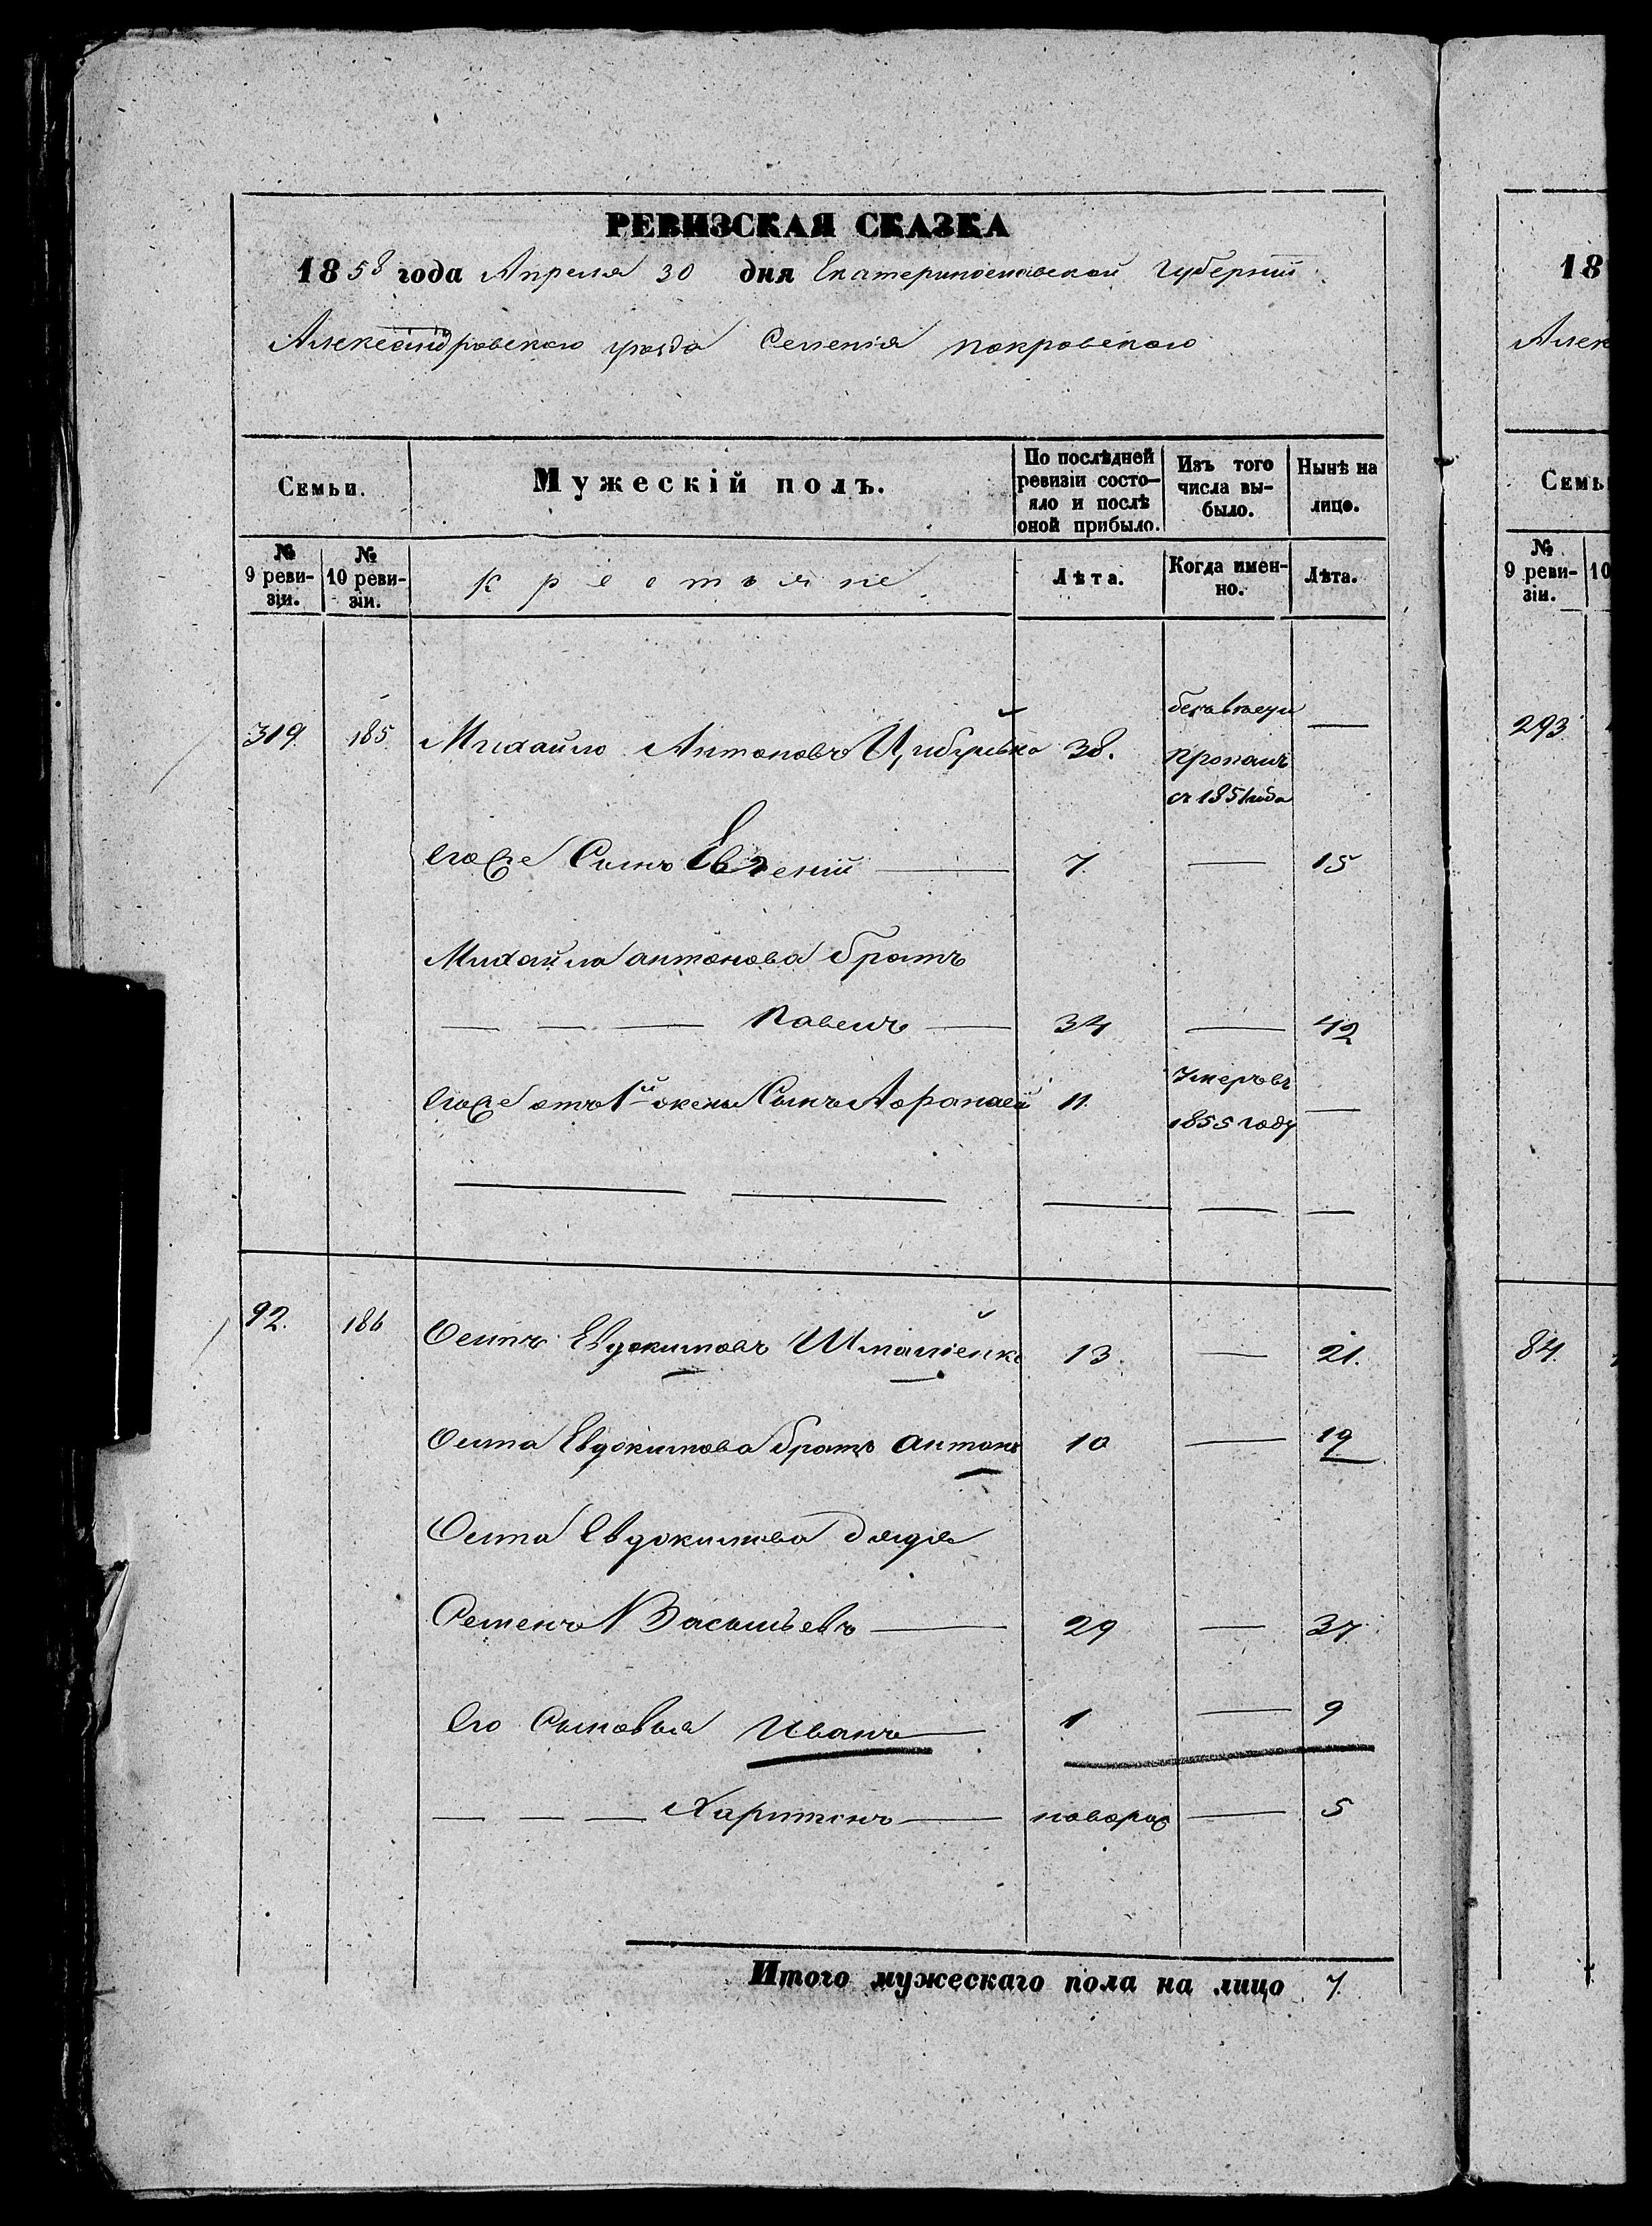 РЕВИЗСКАЯ СКАЗКА
1858 года Апреля 30 дня Екатеринославской Губернии
Александровского уезда Селения покровского
Семьи.
Мужескій полъ.
По послѣдней ревизіи состо-
яло и послѣ оной прибыло.
Изъ того числа вы-
было.
Нынѣ на лицо.
№ 9 реви-
зіи.
№ 10 реви-
зіи.
крестьяне.
Лѣта.
Когда имен-
но.
Лѣта.
319 185 Михайло Антоновъ Цибулька 38. пропалъ —
съ 1851 года
Егоже Сынъ Евгений — 7. — 15
Михайла антонова братъ
— — — Павелъ — 34 — 42
Егоже отъ 1й жены Сынъ Афанасий 11. Умеръ въ —
1855 году
92. 186 Осипъ Евдокимовъ 13. — 21.
Осипа Евдокимова братъ антонъ 10 — 19
Осипа Евдокимова дядя
Семенъ Васильевъ — 29 — 37
Его Сыновья Иванъ — 1 — 9
— — — Харитонъ — новорож — 5
Итого мужескаго пола на лицо 7.
18
Алек
Семь
№ 9 реви-
зіи.
10
293
84.